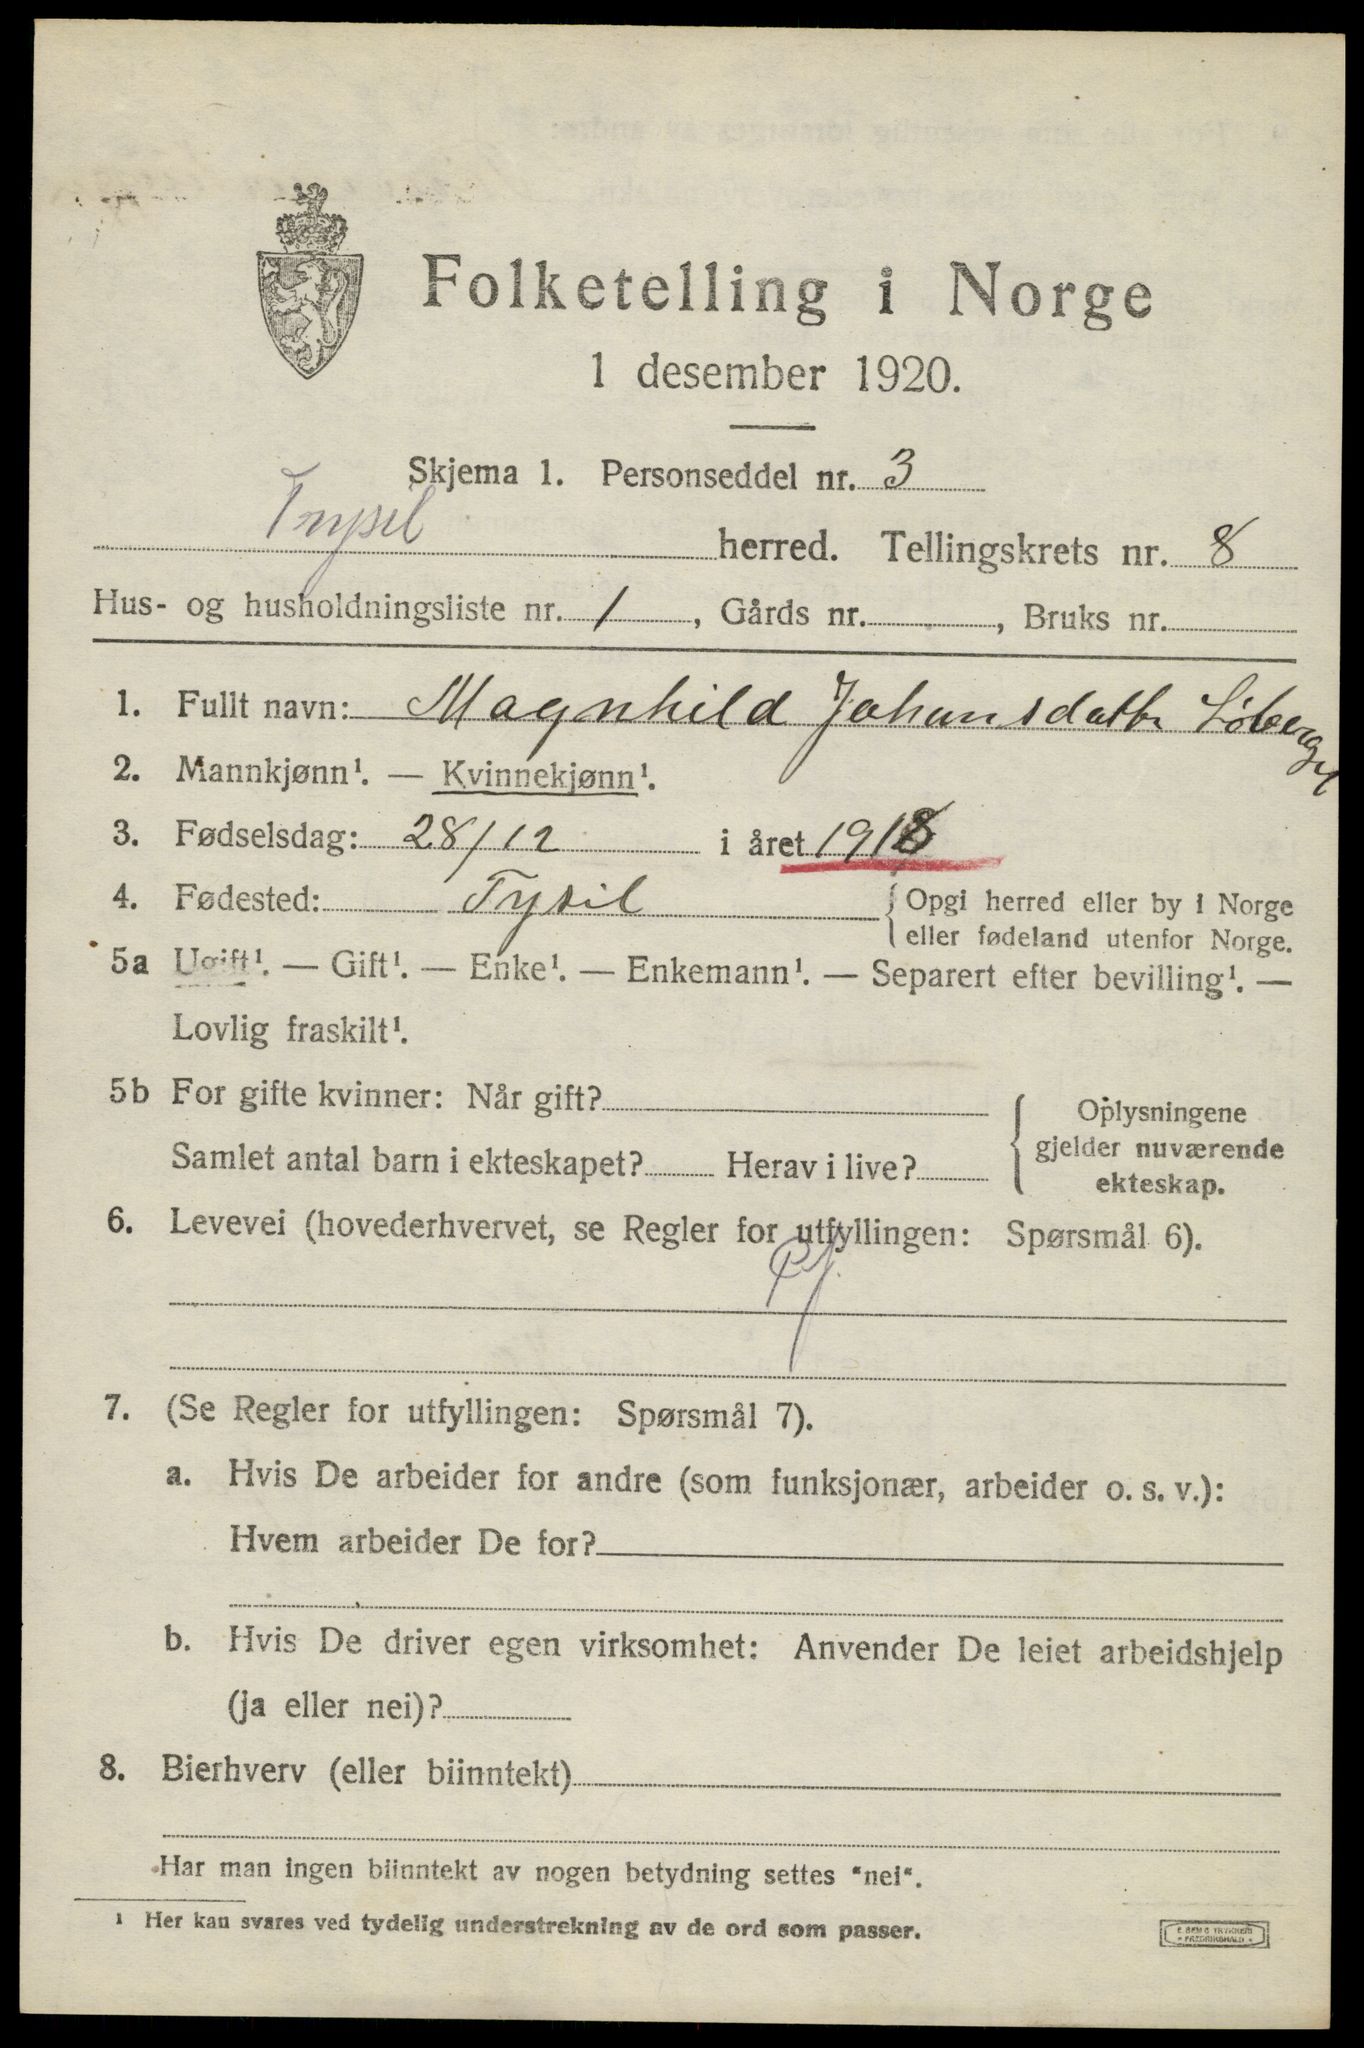 Folketelling i Norge
1 desember 1920.
Skjema 1. Personseddel nr. 3
Trysil herred. Tellingskrets nr. 8
Hus- og husholdningsliste nr. 1, Gårds nr. , Bruks nr.
1. Fullt navn: Magnhild Johansdatter
2. Mannkjønn¹. — Kvinnekjønn¹.
3. Fødselsdag: 28/12 i året 1918
4. Fødested: Tysil { Opgi herred eller by i Norge
eller fødeland utenfor Norge.
5a Ugift¹. — Gift¹. — Enke¹. — Enkemann¹. — Separert efter bevilling¹. —
Lovlig fraskilt¹.
5b For gifte kvinner: Når gift? { Oplysningene
Samlet antal barn i ekteskapet? Herav i live? gjelder nuværende
ekteskap.
6. Levevei (hovederhvervet, se Regler for utfyllingen: Spørsmål 6).
7. (Se Regler for utfyllingen: Spørsmål 7).
a. Hvis De arbeider for andre (som funksjonær, arbeider o. s. v.):
Hvem arbeider De for?
b. Hvis De driver egen virksomhet: Anvender De leiet arbeidshjelp
(ja eller nei)?
8. Bierhverv (eller biinntekt)
Har man ingen biinntekt av nogen betydning settes "nei".
¹ Her kan svares ved tydelig understrekning av de ord som passer.